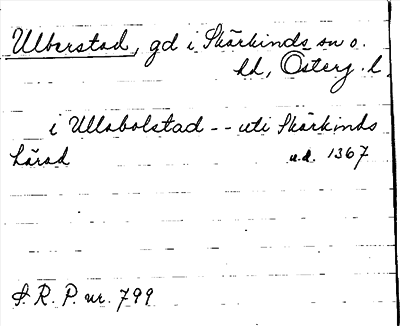 Ulberstad, gd i Skärkinds sn o.
hd, Österg. l.
i Ullabolstad -- uti Skärkinds
härad u.d. 1367
S. R. P. nr. 799